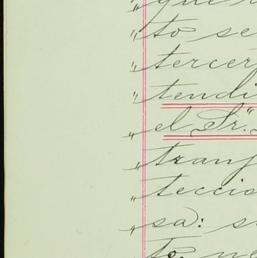 " que
" to se
" tercer
" tendi
" el Sr."
" tranf
" teccio
" sa: s
" to. ne